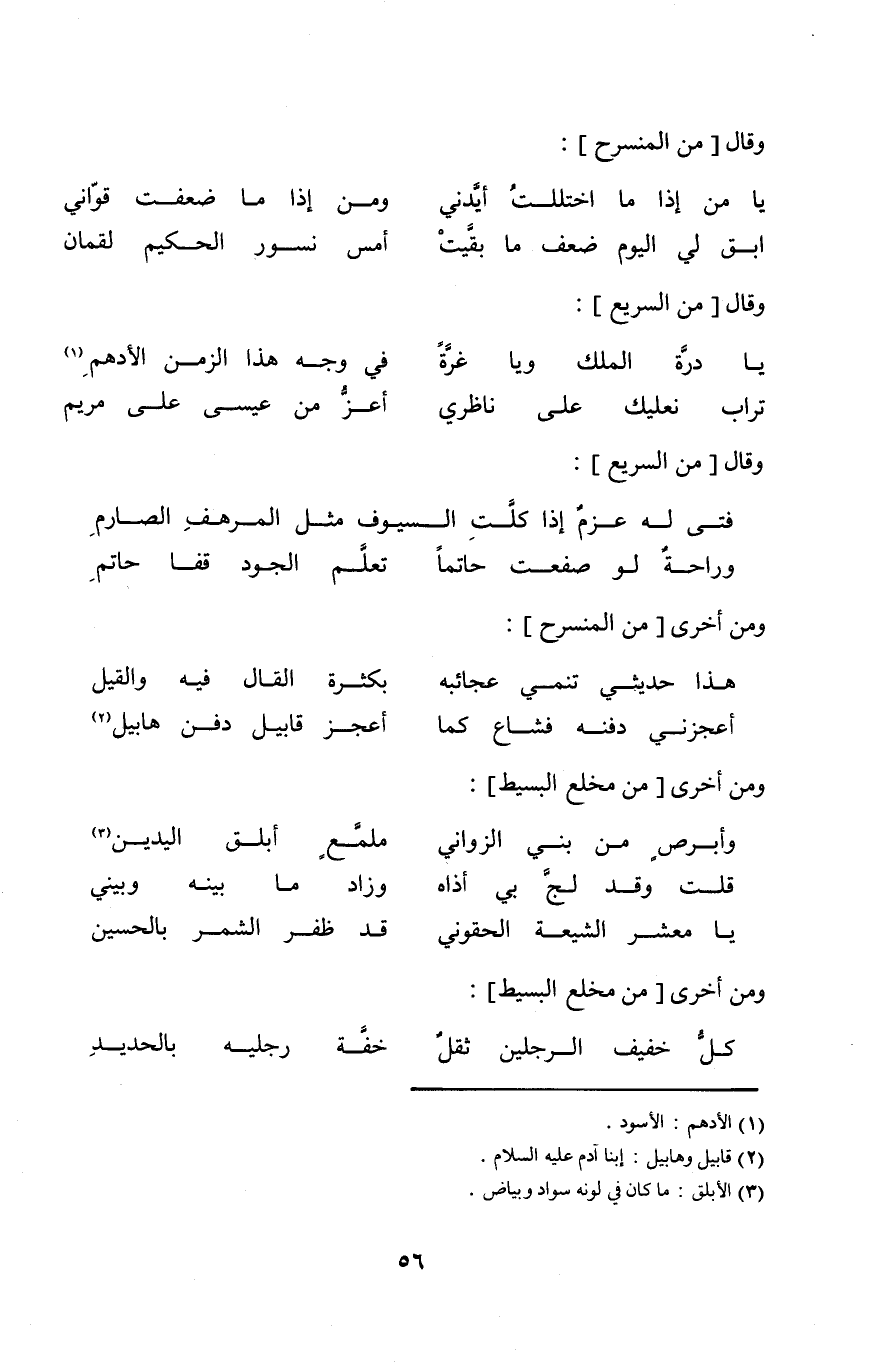 وقال [ من المنسرح ] :
يا من إذا ما اختللتُ أيَّدني ومن إذا ما ضعفت قوّاني
ابق لي اليوم ضعف ما بقَّيتْ أمس نسور الحكيم لقمان
وقال [ من السريع ] :
يا درَّة الملك ويا غرَّةً في وجه هذا الزمن الأدهمِ(١)
تراب نعليك على ناظري أعزُّ من عيسى على مريم
وقال [ من السريع ] :
فتى له عزمٌ إذا كلَّتِ السيوف مثل المرهفِ الصارمِ
وراحةٌ لو صفعت حاتماً تعلَّم الجود قفا حاتمِ
ومن أخرى [ من المنسرح ] :
هذا حديثي تنمي عجائبه بكثرة القال فيه والقيل
أعجزني دفنه فشاع كما أعجز قابيل دفن هابيل(٢)
ومن أخرى [ من مخلع البسيط] :
وأبرصٍ من بني الزواني ملمَّعٍ أبلق اليدين(٣)
قلت وقد لجَّ بي أذاه وزاد ما بينه وبيني
يا معشر الشيعة الحقوني قد ظفر الشمر بالحسين
ومن أخرى [ من مخلع البسيط] :
كلُّ خفيف الرجلين ثقلٌ خفَّة رجليه بالحديدِ
(١) الأدهم : الأسود .
(٢) قابيل وهابيل : إبنا آدم عليه السلام .
(٣) الأبلق : ما كان في لونه سواد وبياض .
٥٦